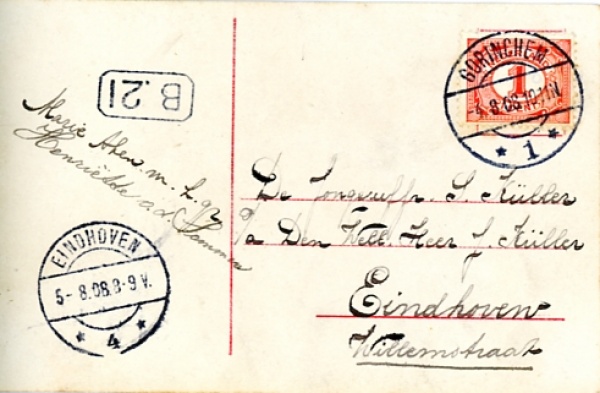 B.21
Marie
Henriëtte a.d.
GORINCHEM
1
4. 8.08.10-11N.
* 1 *
De Jongejuffr. S. Küller
p/a Den Well. Heer J. Küller
Eindhoven
Willemstraat
EINDHOVEN
5- 8.08.8-9 V.
* 4 *